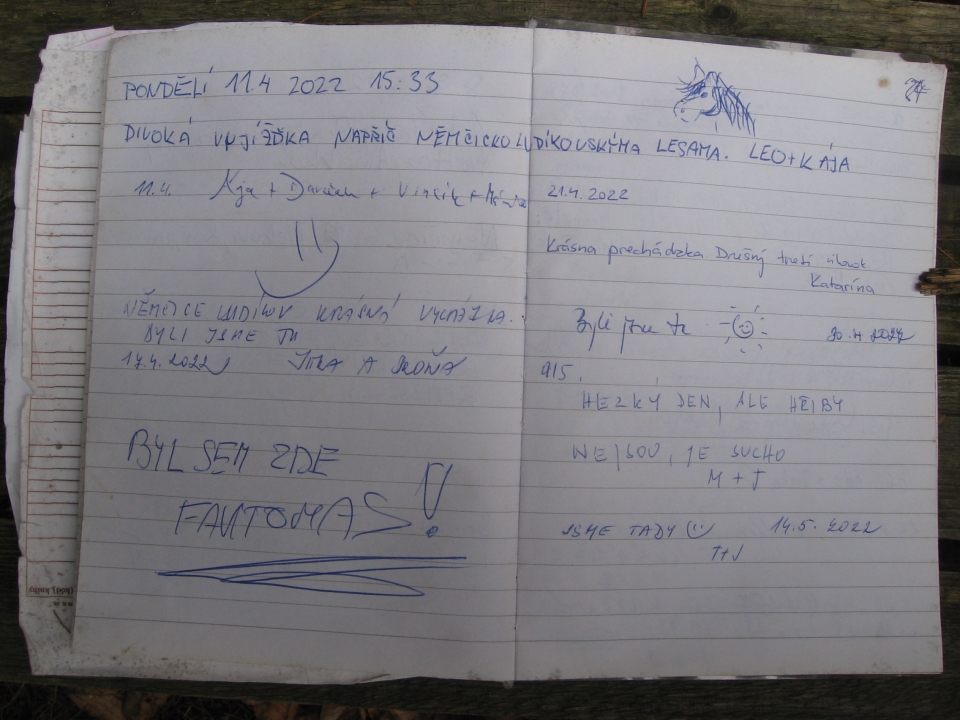 PONDĚLÍ 11.4 2022 15:33
DIVOKÁ VYJÍŽĎKA NAPŘÍČ NĚMČICKOLUDÍKOVSKÝMA LESAMA. LEO+KÁJA
11.4. + +
NĚMČICE LUDÍKOV KRÁSNÁ
BYLI JSME TU
17.4.2022 JITKA A
BYL SEM ZDE
FANTOMAS!
21.4.2022
Krásna prechádzka Drušný tretí
Katarína
Byli jsme tu
30.4 2022
9/5.
HEZKÝ DEN, ALE HŘIBY
NEJSOU, JE SUCHO
M + J
JSME TADY 14.5.2022
T+J